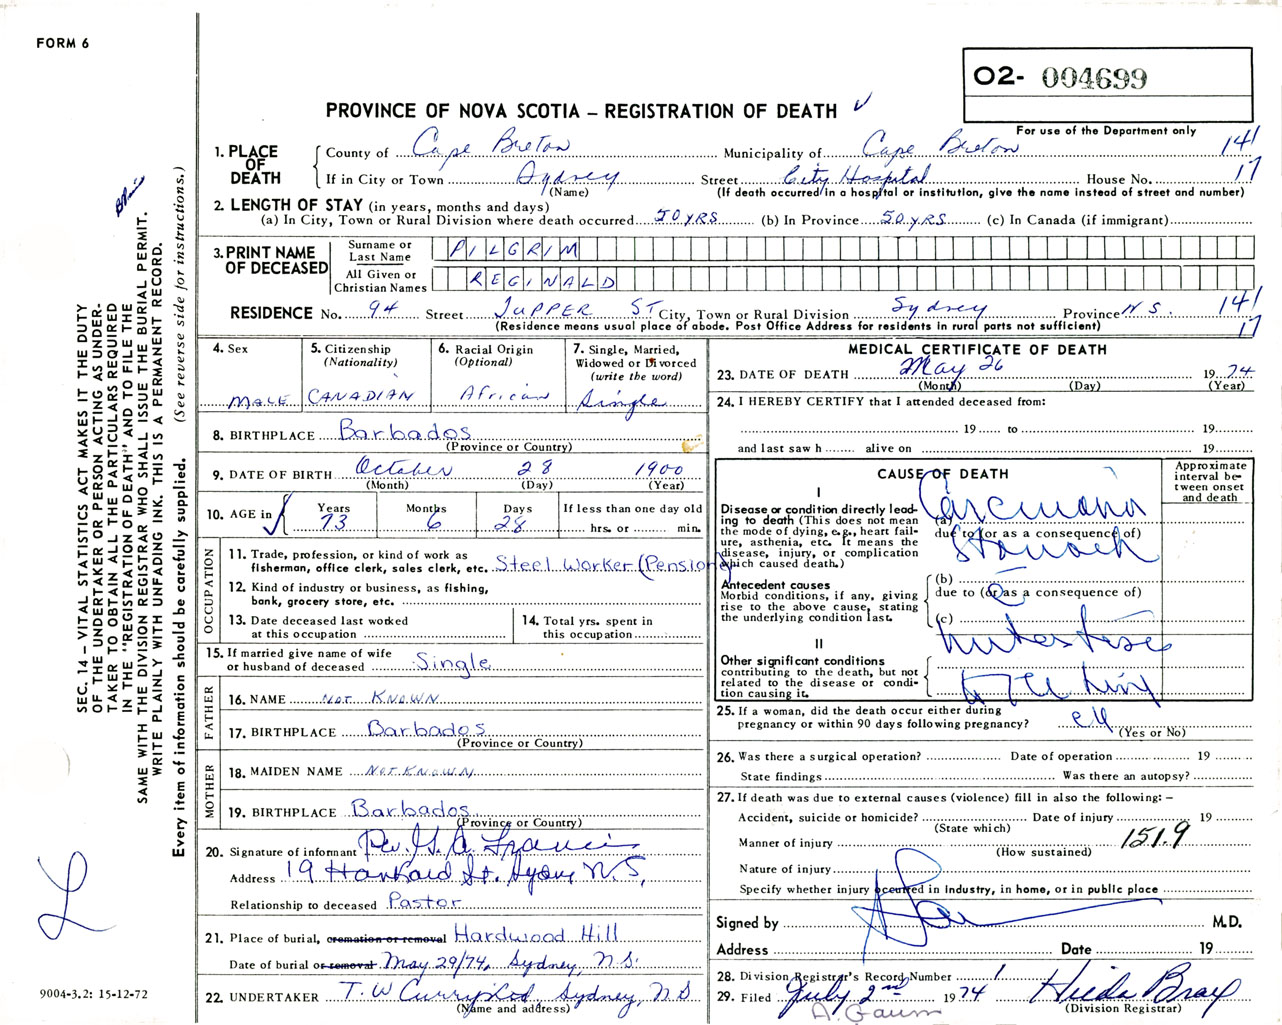 FORM 6
O2- 004699
For use of the Department only
PROVINCE OF NOVA SCOTIA – REGISTRATION OF DEATH
1. PLACE OF DEATH
County of Cape Breton Municipality of Cape Breton 141
If in City or Town Sydney Street City Hospital House No. 17
(Name) (If death occurred in a hospital or institution, give the name instead of street and number)
2. LENGTH OF STAY (in years, months and days)
(a) In City, Town or Rural Division where death occurred 50 YRS (b) In Province 50 YRS (c) In Canada (if immigrant)
3. PRINT NAME OF DECEASED
Surname or Last Name PILGRIM
All Given or Christian Names REGINALD
RESIDENCE No. 94 Street TUPPER ST City, Town or Rural Division Sydney Province N.S. 141
(Residence means usual place of abode. Post Office Address for residents in rural parts not sufficient) 17
4. Sex MALE
5. Citizenship (Nationality) CANADIAN
6. Racial Origin (Optional) African
7. Single, Married, Widowed or Divorced (write the word) Single
8. BIRTHPLACE Barbados
(Province or Country)
9. DATE OF BIRTH October 28 1900
(Month) (Day) (Year)
10. AGE in Years 73 Months 6 Days 28 If less than one day old hrs. or min.
OCCUPATION
11. Trade, profession, or kind of work as fisherman, office clerk, sales clerk, etc. Steel Worker (Pension)
12. Kind of industry or business, as fishing, bank, grocery store, etc.
13. Date deceased last worked at this occupation
14. Total yrs. spent in this occupation
15. If married give name of wife or husband of deceased Single
FATHER
16. NAME NOT KNOWN
17. BIRTHPLACE Barbados
(Province or Country)
MOTHER
18. MAIDEN NAME NOT KNOWN
19. BIRTHPLACE Barbados
(Province or Country)
20. Signature of informant Rev. G. A. Francis
Address 19 Hankard St. Sydney N.S.
Relationship to deceased Pastor
21. Place of burial, cremation or removal Hardwood Hill
Date of burial or removal May 29/74, Sydney, N.S.
22. UNDERTAKER T. W. Curry Sydney, N S
(Name and address)
MEDICAL CERTIFICATE OF DEATH
23. DATE OF DEATH May 26 19 74
(Month) (Day) (Year)
24. I HEREBY CERTIFY that I attended deceased from:
19 to 19
and last saw h alive on 19
CAUSE OF DEATH
Approximate interval between onset and death
I
Disease or condition directly leading to death (This does not mean the mode of dying, e.g., heart failure, asthenia, etc. It means the disease, injury, or complication which caused death.)
(a) Carcinoma
due to (or as a consequence of)
Stomach
Antecedent causes
Morbid conditions, if any, giving rise to the above cause, stating the underlying condition last.
(b)
due to (or as a consequence of)
(c)
II
Other significant conditions contributing to the death, but not related to the disease or condition causing it.
25. If a woman, did the death occur either during pregnancy or within 90 days following pregnancy?
(Yes or No)
26. Was there a surgical operation? Date of operation 19
State findings Was there an autopsy?
27. If death was due to external causes (violence) fill in also the following: –
Accident, suicide or homicide? Date of injury 19
(State which)
Manner of injury 151.9
(How sustained)
Nature of injury
Specify whether injury occurred in industry, in home, or in public place
Signed by M.D.
Address Date 19
28. Division Registrar's Record Number 1
29. Filed July 2nd 1974 Hilda Bray
(Division Registrar)
SEC. 14 – VITAL STATISTICS ACT MAKES IT THE DUTY
OF THE UNDERTAKER OR PERSON ACTING AS UNDER-
TAKER TO OBTAIN ALL THE PARTICULARS REQUIRED
IN THE "REGISTRATION OF DEATH" AND TO FILE THE
SAME WITH THE DIVISION REGISTRAR WHO SHALL ISSUE THE BURIAL PERMIT.
WRITE PLAINLY WITH UNFADING INK. THIS IS A PERMANENT RECORD.
Every item of information should be carefully supplied. (See reverse side for instructions.)
9004-3.2: 15-12-72